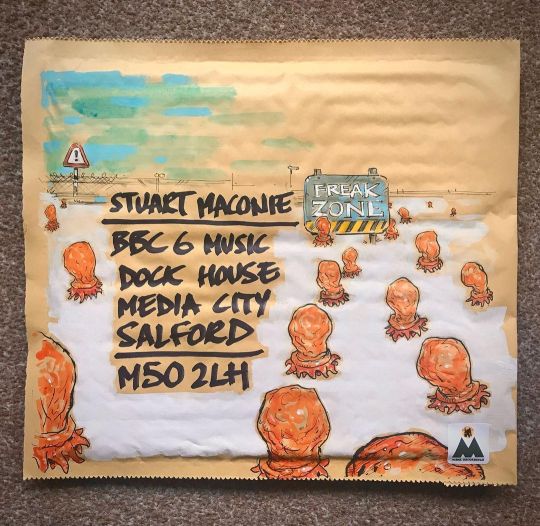 !
FREAK
ZONE
STUART MACONIE
BBC 6 MUSIC
DOCK HOUSE
MEDIA CITY
SALFORD
M50 2LH
M